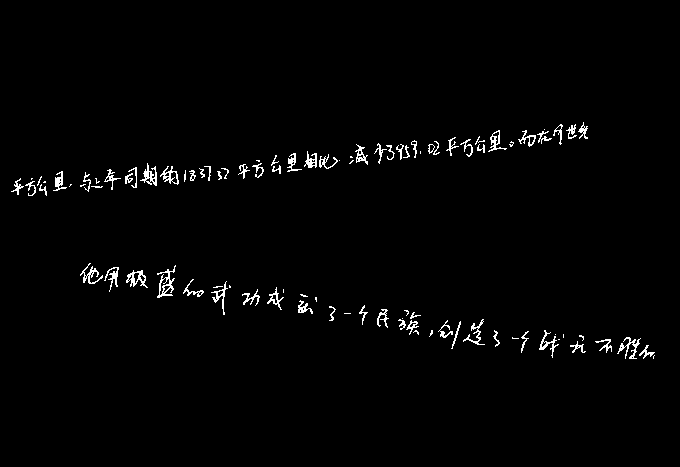 平方公里，与上年同期的18737平方公里相比，减少3959.02平方公里。而在今世纪
他用极盛的武功成就了一个民族，创造了一个战无不胜的